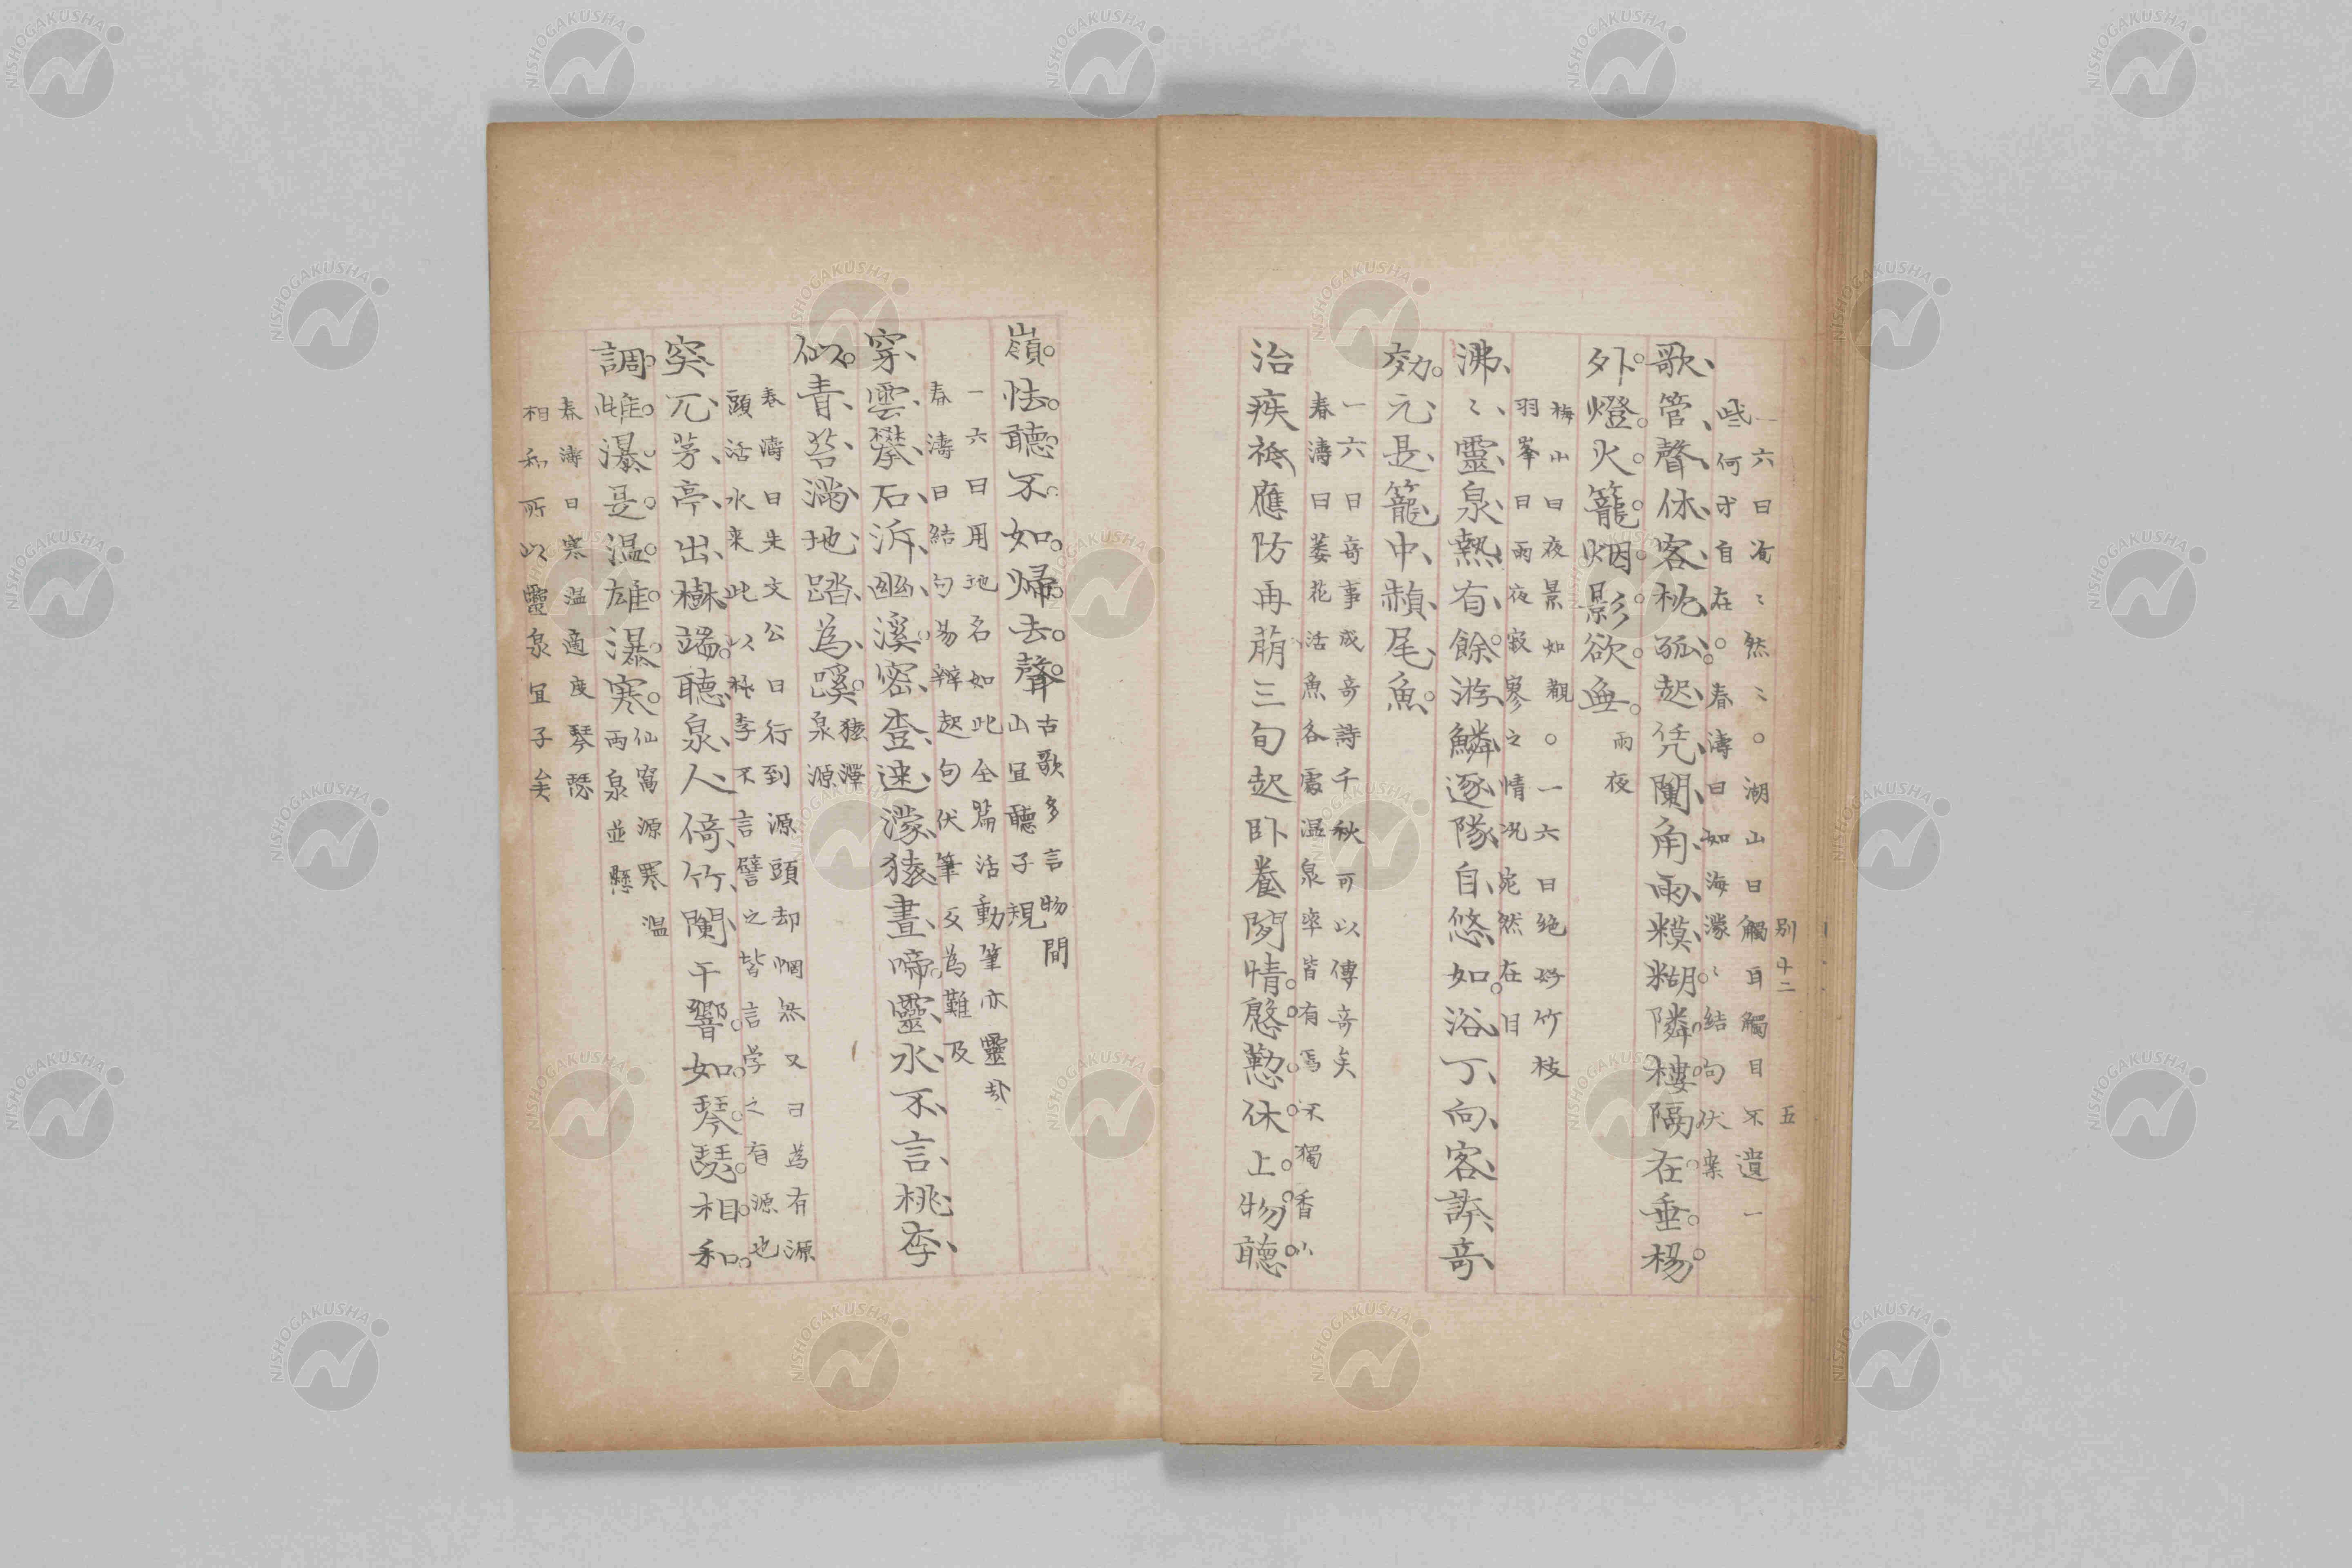 別十二 五
一六曰渹〻然〻。湖山曰觸耳觸目不遺一
些何才自在。春濤曰如海濛〻結句伏案
歌管聲休客枕孤起凭闌角雨糢糊隣樓隔在垂楊
外燈火籠烟影欲無 雨夜
梅山曰夜景如覩。一六曰絶好竹枝
羽峯曰雨夜寂寥之情况宛然在目
沸〻靈泉熱有餘游鱗逐隊自悠如浴丁向客誇奇
効元是籠中赬尾魚
一六曰奇事成奇詩千秋可以傳奇矣
春濤曰萎花活魚各處温泉率皆有焉不獨香山
治疾祗應防再萠三旬起卧養閑情慇懃休上惣聴
嶺怯聽不如歸去聲 古歌多言惣間
山宜聽子規
一六曰用地名如此全篇活動筆亦靈卦
春濤曰結句易辨起句伏筆反為難及
穿雲攀石泝幽溪密杳迷濛猿晝啼靈水不言桃李
似青苔滿地踏為蹊 猿澤
泉源
春濤曰朱文公曰行到源頭却惘然又曰為有源
頭活水来此以桃李不言譬之皆言学之有源也
突兀茅亭出樹端聽泉人倚竹闌干響如琴瑟相和
調雌瀑是温雄瀑寒 仙窩源寒温
兩泉並懸
春濤曰寒温適度琴瑟
相和所以靈泉宜子矣
NISHOGAKUSHA